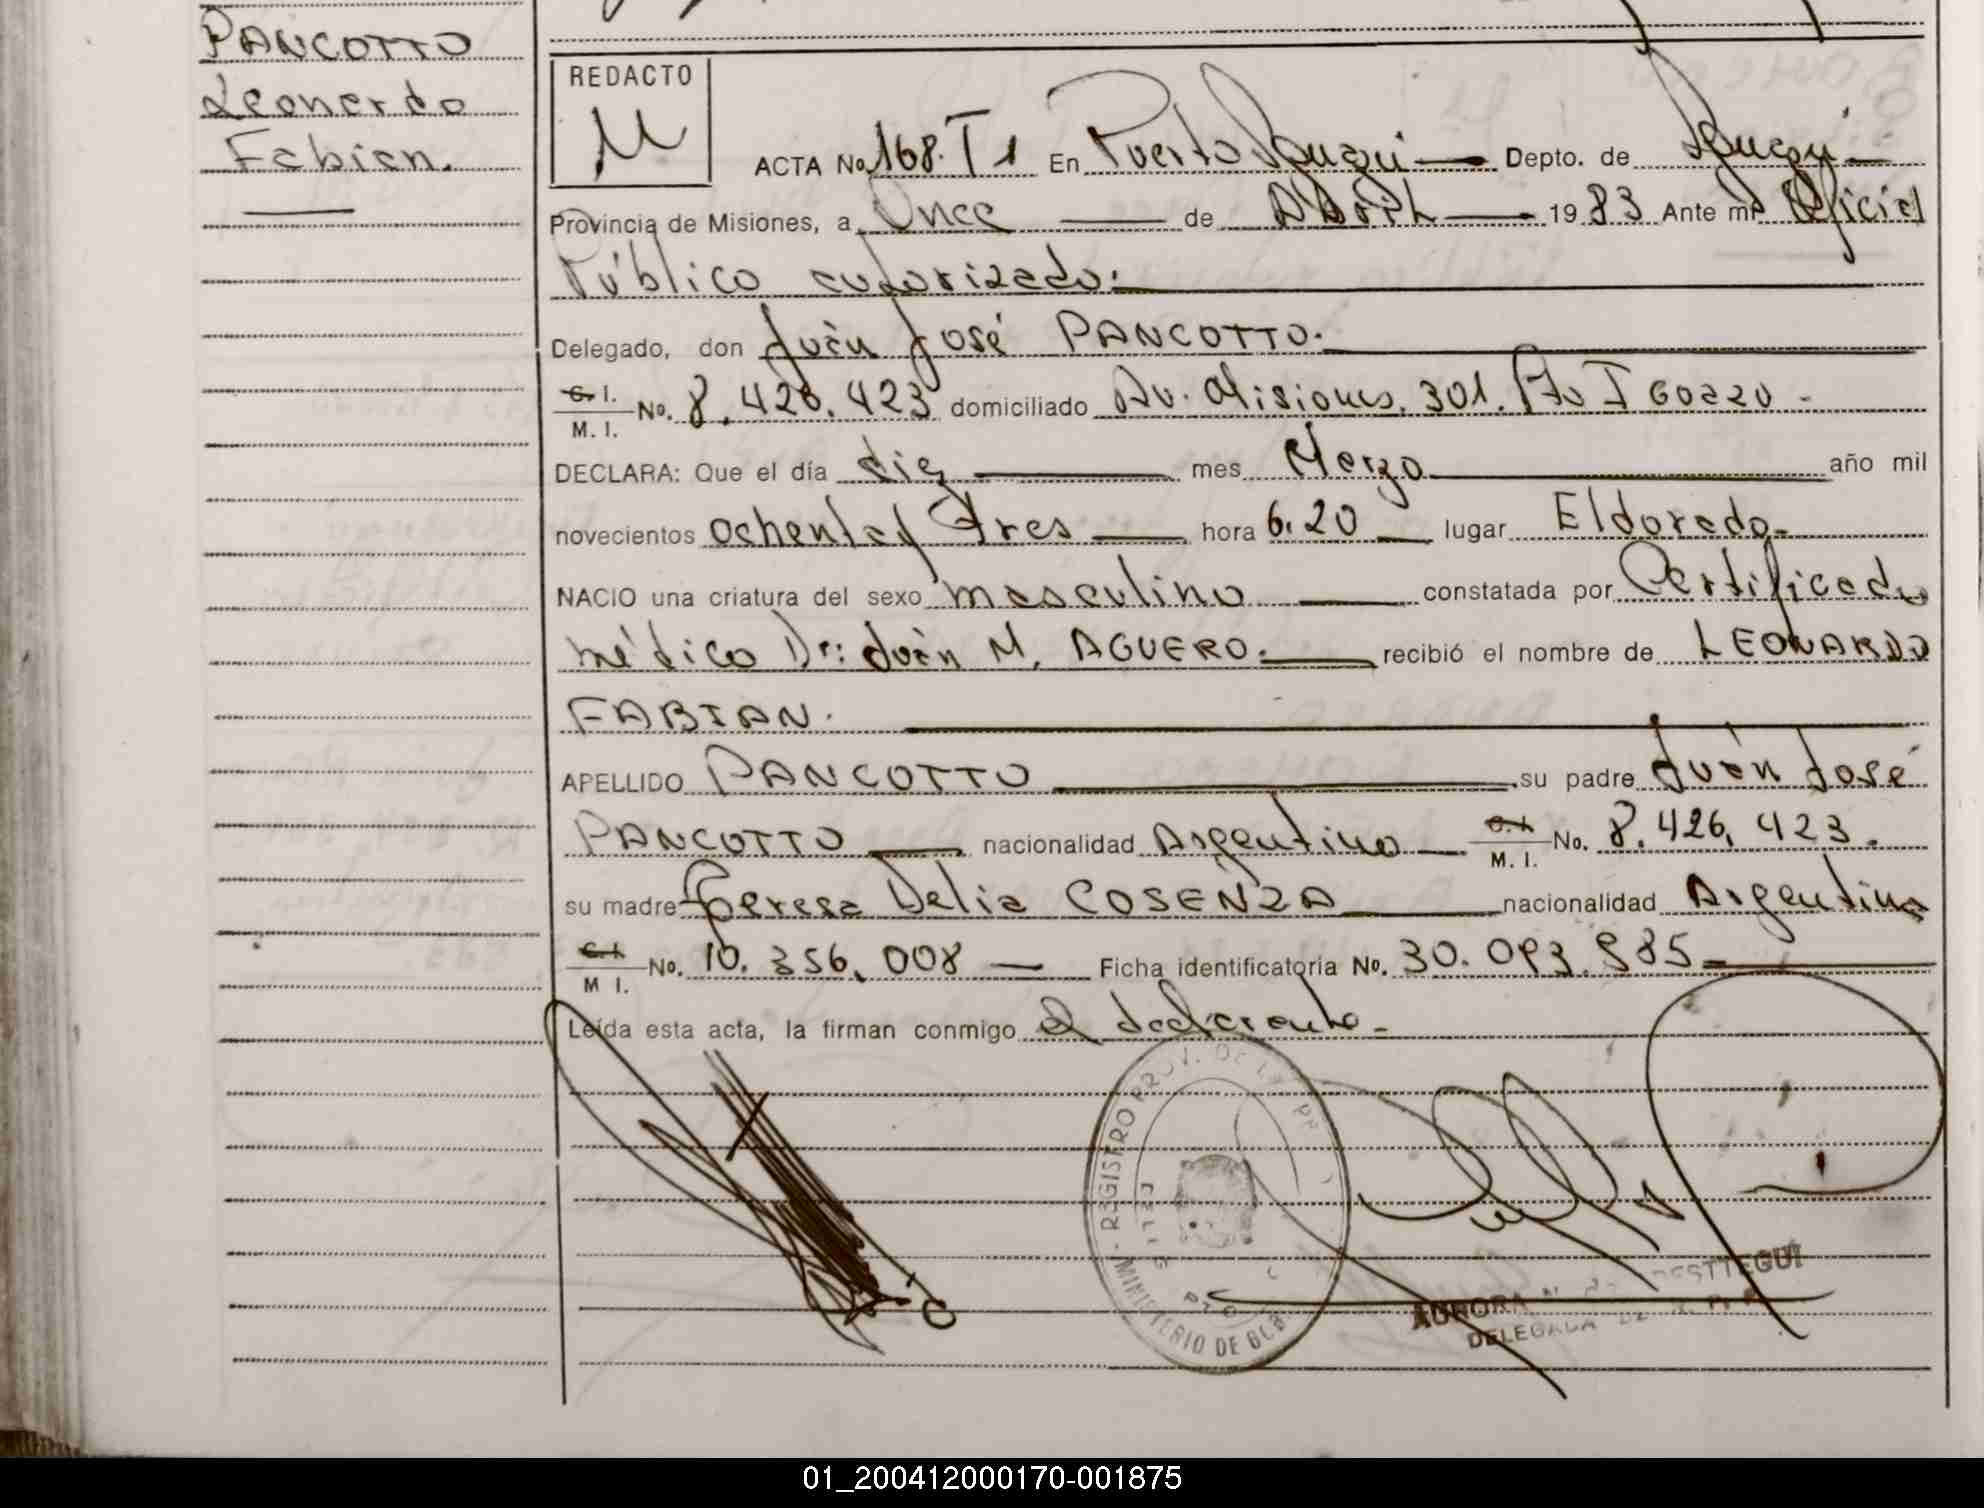 PANCOTTO
Leonardo
Fabian.
REDACTO
ACTA No 168. T 1 En Puerto Iguazú Depto. de Iguazú
Provincia de Misiones, a Once de Abril 1983 Ante mi Oficial
Público autorizado.
Delegado, don Juàn José PANCOTTO.
C. I.
M. I.
No. 8.426.423 domiciliado Av. Misiones. 301. Pto I Gazzu
DECLARA: Que el día diez mes Marzo año mil
novecientos ochenta y tres hora 6.20 lugar Eldorado.
NACIO una criatura del sexo masculino constatada por Certificado
médico Dr: Juàn M. AGUERO. recibió el nombre de LEONARDO
FABIAN.
APELLIDO PANCOTTO su padre Juàn José
PANCOTTO nacionalidad Argentino C. I. M. I. No. 8.426.423.
su madre Teresa Delia COSENZA nacionalidad Argentina
C. I. M I. No. 10.356.008 Ficha identificatoria No. 30.093.985
Leída esta acta, la firman conmigo el declarante.
REGISTRO PROV. DE
MINISTERIO DE GOB.
AURORA
DELEGADA
01_200412000170-001875